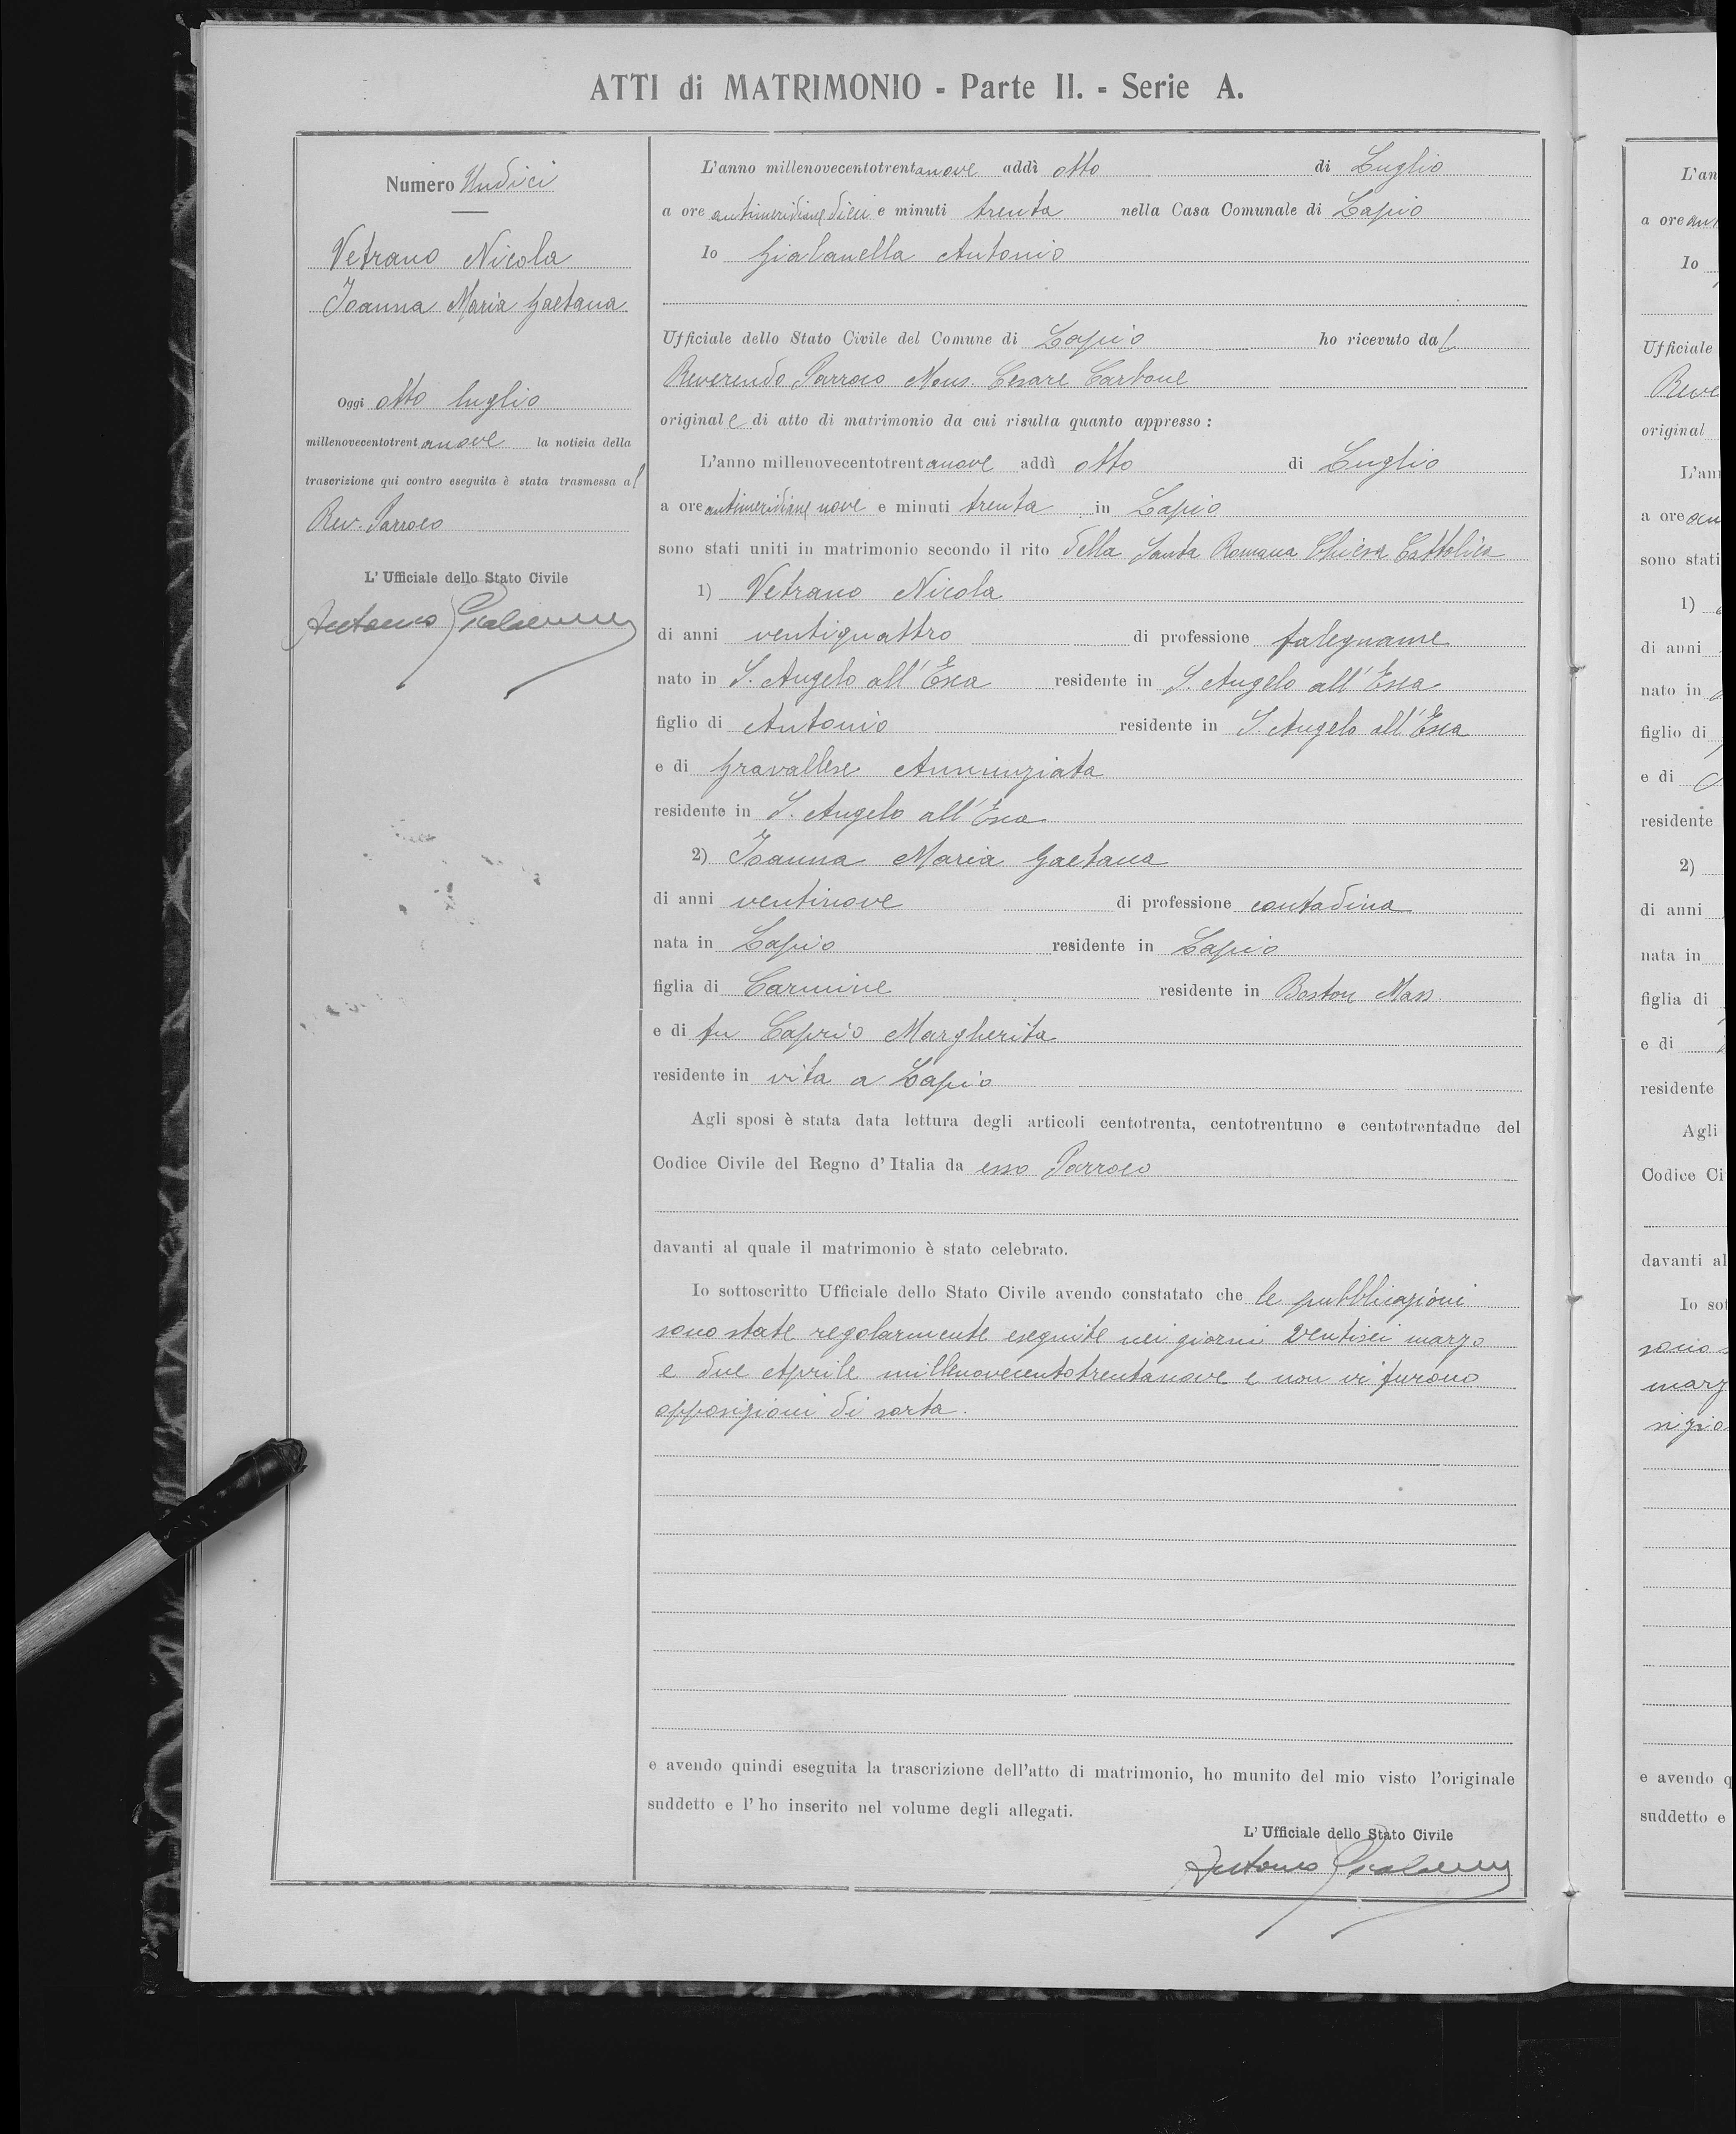 ATTI di MATRIMONIO - Parte II. - Serie A.
Numero Undici
Vetrano Nicola
Ioanna Maria Gaetana
Oggi otto luglio
millenovecentotrentanove la notizia della
trascrizione qui contro eseguita è stata trasmessa al
Rev. Parroco
L'Ufficiale dello Stato Civile
Antonio
L'anno millenovecentotrentanove addì otto di Luglio
a ore antimeridiane dieci e minuti trenta nella Casa Comunale di Lapio
Io Gialanella Antonio
Ufficiale dello Stato Civile del Comune di Lapio ho ricevuto dal
Reverendo Parroco Mons. Cesare Carbone
originale di atto di matrimonio da cui risulta quanto appresso:
L'anno millenovecentotrentanove addì otto di Luglio
a ore antimeridiane nove e minuti trenta in Lapio
sono stati uniti in matrimonio secondo il rito della Santa Romana Chiesa Cattolica
1) Vetrano Nicola
di anni ventiquattro di professione falegname
nato in S. Angelo all'Esca residente in S. Angelo all'Esca
figlio di Antonio residente in S. Angelo all'Esca
e di Gravallese Annunziata
residente in S. Angelo all'Esca
2) Ioanna Maria Gaetana
di anni ventinove di professione contadina
nata in Lapio residente in Lapio
figlia di Carmine residente in Boston Mass
e di fu Caprio Margherita
residente in vita a Lapio
Agli sposi è stata data lettura degli articoli centotrenta, centotrentuno e centotrentadue del
Codice Civile del Regno d'Italia da esso Parroco
davanti al quale il matrimonio è stato celebrato.
Io sottoscritto Ufficiale dello Stato Civile avendo constatato che le pubblicazioni
sono state regolarmente eseguite nei giorni ventisei marzo
e due Aprile millenovecentotrentanove e non vi furono
opposizioni di sorta.
e avendo quindi eseguita la trascrizione dell'atto di matrimonio, ho munito del mio visto l'originale
suddetto e l'ho inserito nel volume degli allegati.
L'Ufficiale dello Stato Civile
Antonio
L'an
a ore an
Io
Ufficiale
Reve
original
L'an
a ore an
sono stati
1)
di anni
nato in
figlio di
e di
residente
2)
di anni
nata in
figlia di
e di
residente
Agli
Codice Ci
davanti al
Io sot
sono
marz
sizio
e avendo q
suddetto e